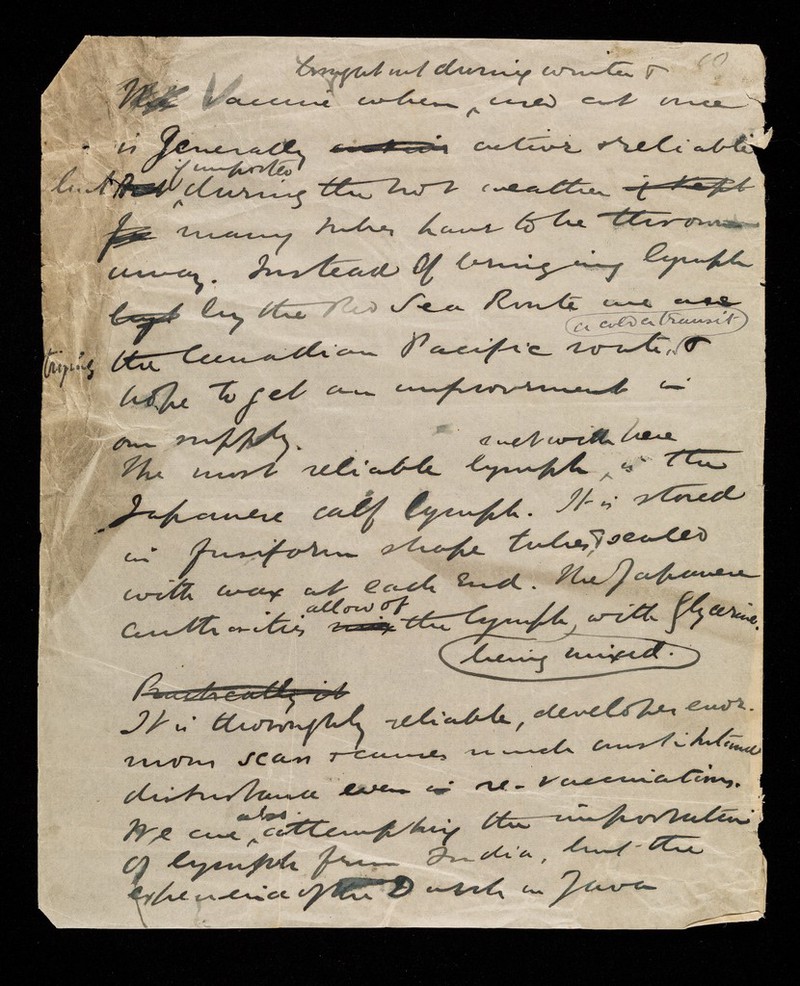 60
brought out during winter &
The Vaccine when used at once
is generally active active & reliable
if imported
but But during the hot weather if kept
for many tubes have to be thrown
away. Instead of bringing lymph
by the Red Sea Route we are
a colder transit
trying the Canadian Pacific route, &
hope to get an improvement in
our supply.
met with here
The most reliable lymph is the
Japanese calf lymph. It is stored
in fusiform shape tubes, & sealed
with wax at each end. The Japanese
allow of
authorities mix the lymph, with Glycerine.
being mixed.
Practically it
It is thoroughly reliable, developes enor-
mous scars & causes much constitutional
disturbance even in re-vaccinations.
also
We are attempting the importation
of lymph from India, but the
experience of the Dutch in Java